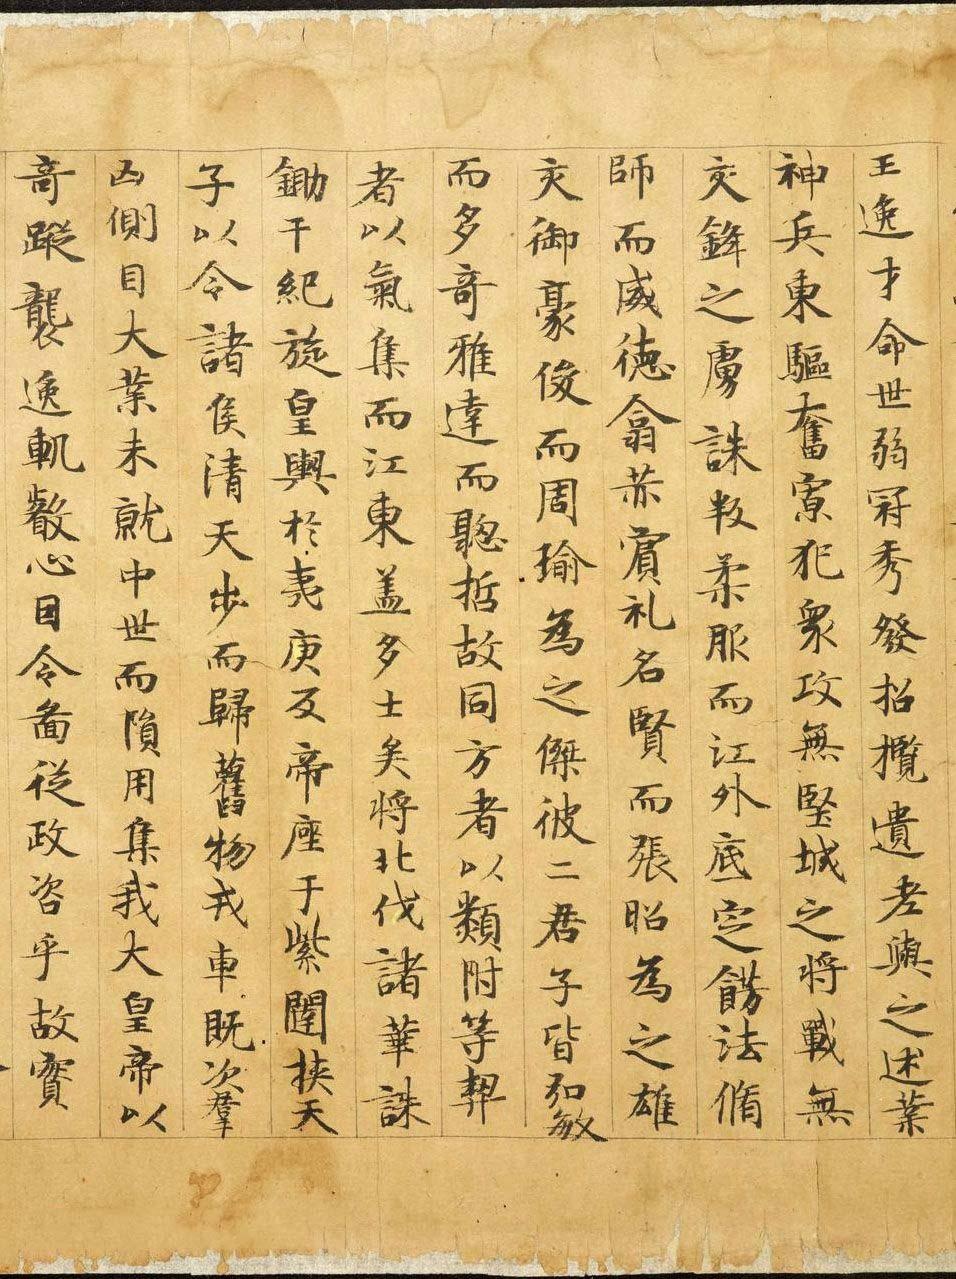 王逸才命世弱冠秀發招攬遺老與之述業
神兵東驅奮寡犯衆攻無堅城之将戰無
交鋒之虜誅叛柔服而江外底定飭法脩
師而威德翕赫賓礼名賢而張昭為之雄
交御豪俊而周瑜為之傑彼二君子皆弘敏
而多奇雅達而聰哲故同方者以類附等契
者以氣集而江東盖多士矣将北伐諸華誅
鋤干紀旋皇輿於夷庚反帝座于紫闥挾天
子以令諸侯清天步而歸舊物戎車既次羣
凶側目大業未就中世而隕用集我大皇帝以
奇蹤襲逸軌叡心因令啚從政咨乎故實